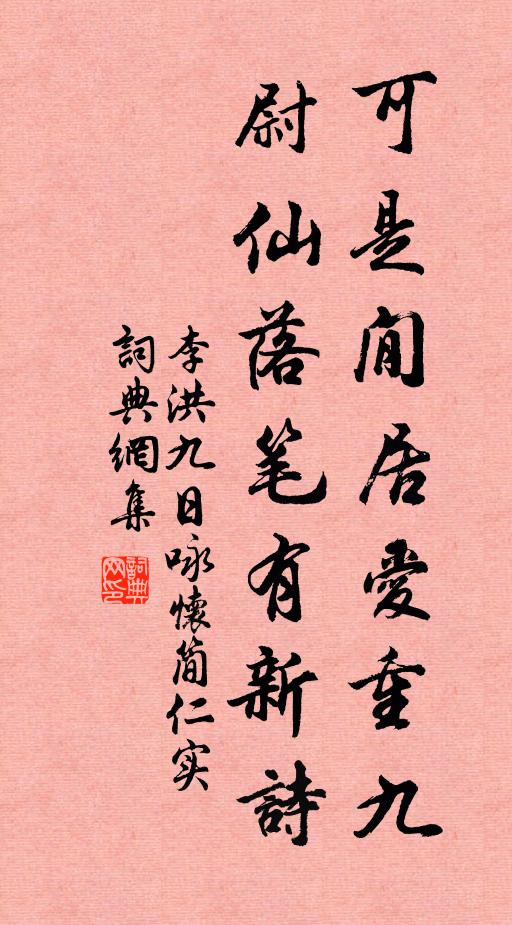 可是闲居爱重九
尉仙落笔有新詩
李洪九日咏懷简仁实
詞典網集
詞典网印